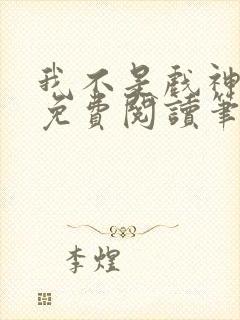 我不是戲神
免費閱讀筆
李煌